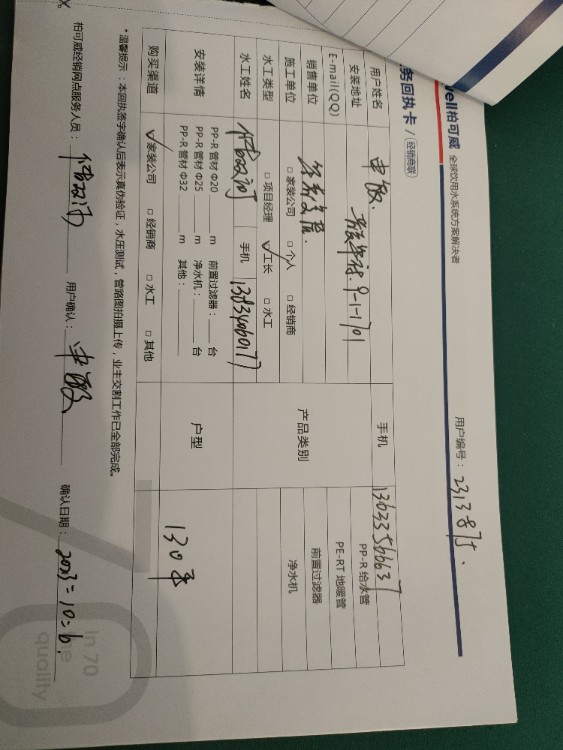 ell柏可威 全球饮用水系统方案解决者
务回执卡 / 经销商联
用户编号：2313875.
用户姓名 申殿. 手机 13633566637
安装地址 9-1-1701
E-mail(QQ)
销售单位
施工单位 □家装公司 □个人 □经销商
产品类别 PP-R 给水管
PE-RT 地暖管
前置过滤器
净水机
水工类型 □项目经理 √工长 □水工
水工姓名 手机 13834060177
安装详情 PP-R 管材 Φ20 m 前置过滤器： 台
PP-R 管材 Φ25 m 净水机： 台
PP-R 管材 Φ32 m 其他：
户型 130平
购买渠道 √家装公司 □经销商 □水工 □其他
*温馨提示：本回执签字确认后表示真伪验证，水压测试，管路图拍摄上传，业主交割工作已全部完成。
柏可威经销网点服务人员： 用户确认： 确认日期：2023=10=6.
in 70
quality